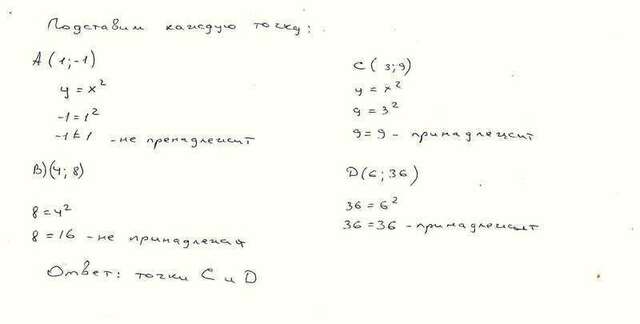 Подставим каждую точку:
A (1;-1)
y = x²
-1 = 1²
-1 ≠ 1 - не пренадлежит
B) (4; 8)
8 = 4²
8 = 16 - не принадлежит
C (3;9)
y = x²
9 = 3²
9 = 9 - принадлежит
D (6; 36)
36 = 6²
36 = 36 - принадлежит
Ответ: точки C и D